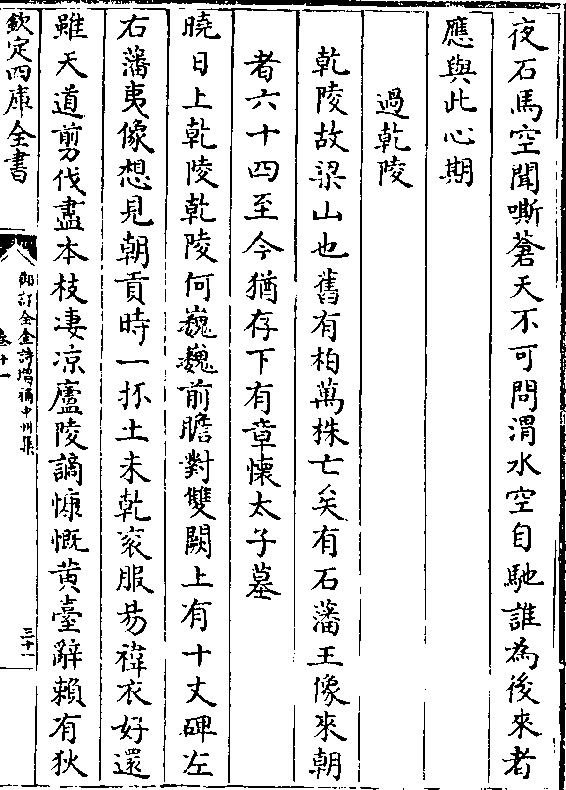 夜石馬空聞嘶蒼天不可問渭水空自馳誰為後來者
應與此心期
過乾陵
乾陵故梁山也舊有柏萬株亡矣有石藩王像來朝
者六十四至今猶存下有章懷太子墓
曉日上乾陵乾陵何巍巍前瞻對雙闕上有十丈碑左
右藩夷像想見朝貢時一抔土未乾衮服易褘衣好還
雖天道剪伐盡本枝凄凉廬陵謫慷慨黄臺辭賴有狄
欽定四庫全書
御訂全金詩增補中州集
卷十一
三十一